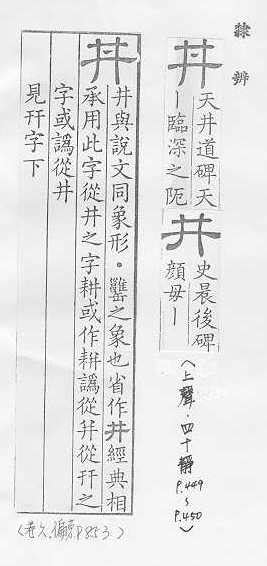 隸辨
丼 天井道碑天
｜臨深之阨
井 史晨後碑
顏母｜
（上聲．四十靜
P.449
~
P.450）
丼 丼與說文同象形．罋之象也省作井經典相
承用此字從丼之字耕或作耕譌從幵從幵之
字或譌從井
見幵字下
（卷六、偏旁P.853.）